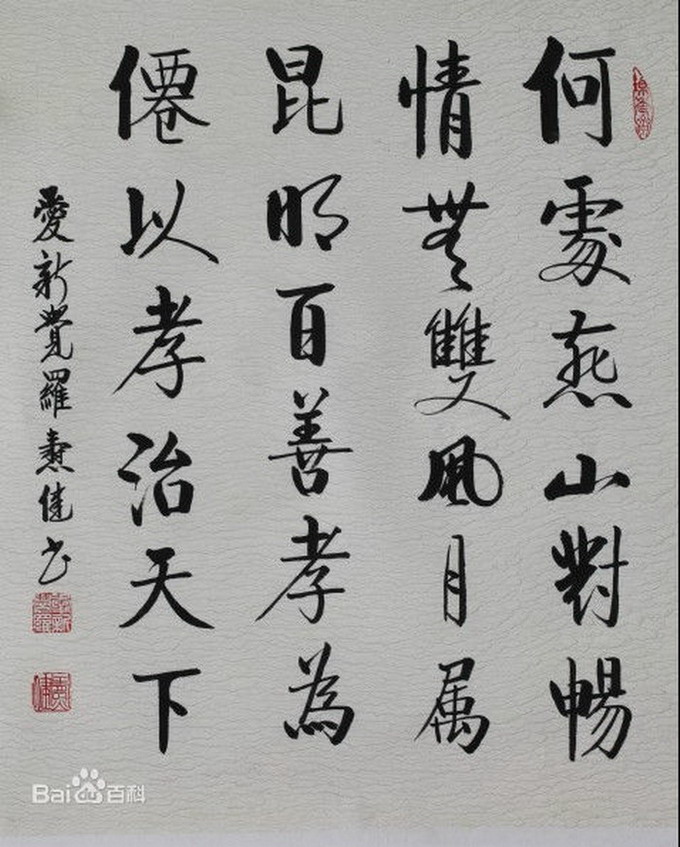 何處燕山對暢
情無雙風月属
昆明百善孝為
僊以孝治天下
愛新覺羅健书
Bai du 百科